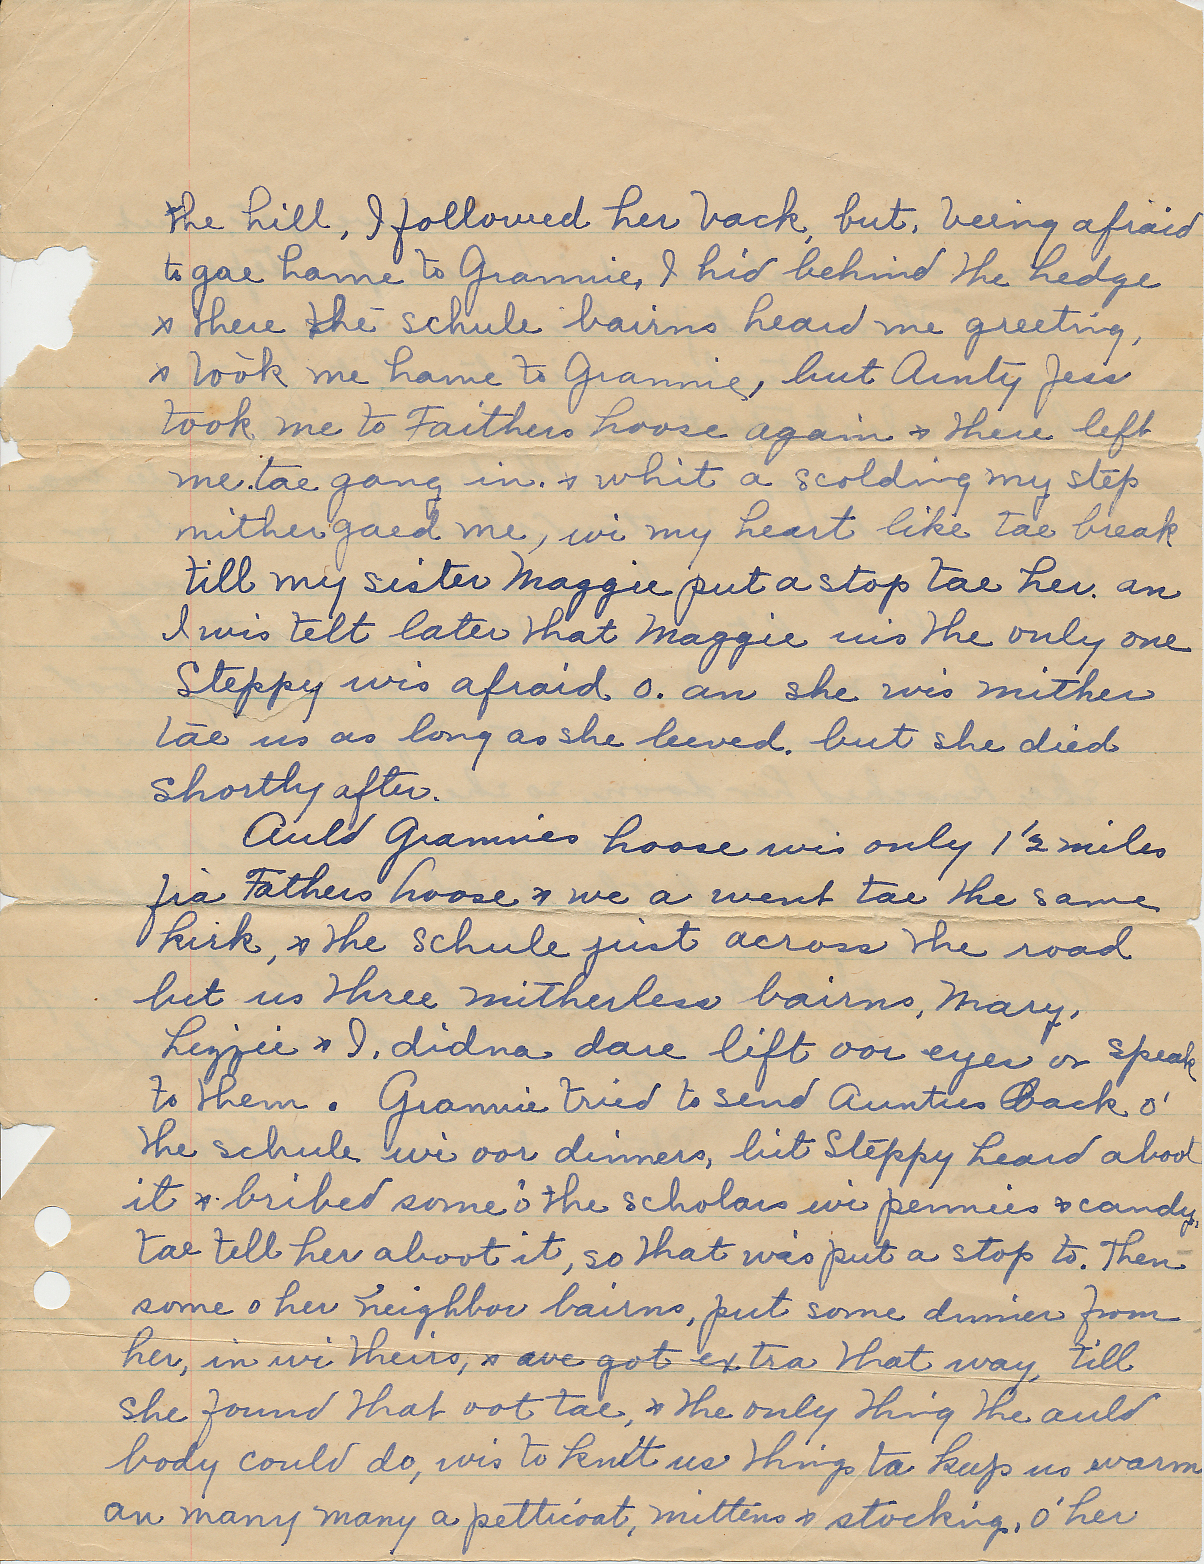 the hill, I followed her back, but, being afraid
to gae hame to Grannie, I hid behind the hedge
& there the schule bairns heard me greeting,
& took me hame to Grannie, but Aunty Jess
took me to Faithers hoose again & there left
me. tae gang in. & whit a scolding my step
mither gaed me, wi my heart like tae break
till my sister Maggie put a stop tae her. an
I wis telt later that Maggie wis the only one
Steppy wis afraid o. an she wis mither
tae us as long as she leeved. but she died
shortly after.
Auld Grannies hoose wis only 1 1/2 miles
fra Fathers hoose & we a went tae the same
kirk, & the schule just across the road
but us three mitherless bairns, Mary,
Lizzie & I, didna dare lift oor eyes or speak
to them. Grannie tried to send Aunties back o'
the schule wi oor dinners, but Steppy heard aboot
it & bribed some o' the scholars wi pennies & candy,
tae tell her aboot it, so that was put a stop to. Then
some o her neighbor bairns, put some dinner from
her, in wi theirs, & we got extra that way, till
she found that oot tae, & the only thing the auld
body could do, wis to knit us things ta keep us warm
an many many a petticoat, mittens & stocking, o' her